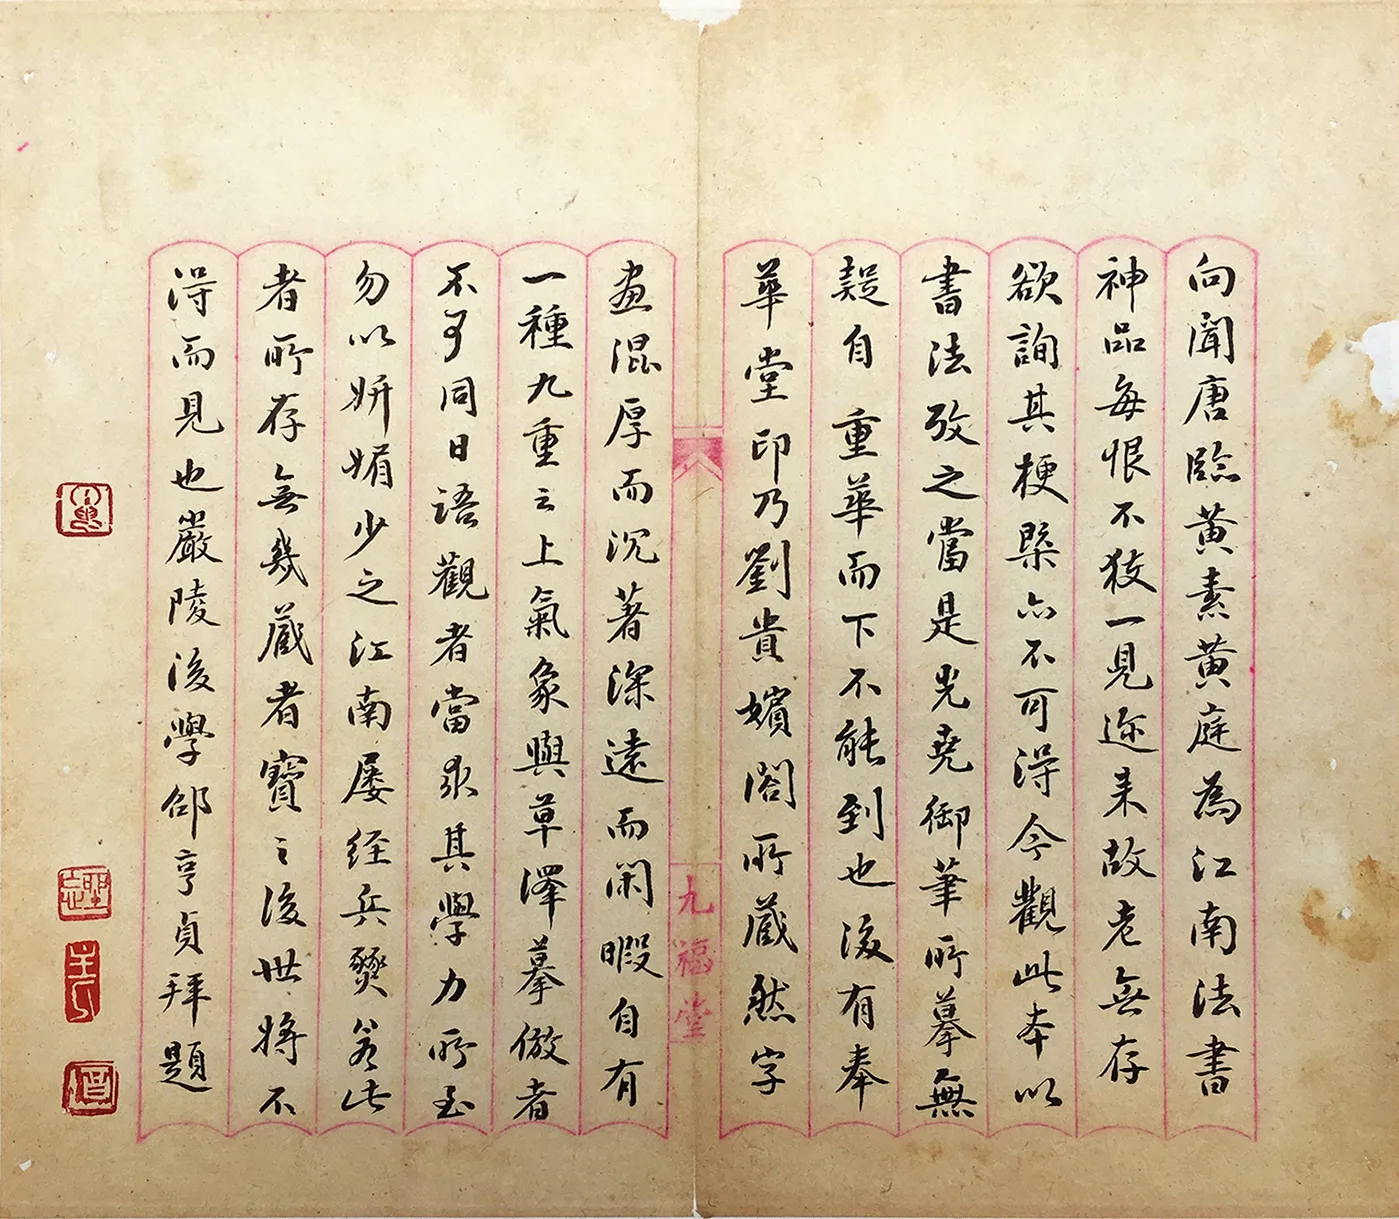 向聞唐臨黃素黃庭為江南法書
神品每恨不獲一見邇来故老無存
欲詢其梗槩亦不可得今觀此本以
書法攷之當是光堯御筆所摹無
疑自 重華而下不能到也後有奉
華堂印乃劉貴嬪閣所藏然字
畫混厚而沉著深遠而閑暇自有
一種九重之上氣象與草澤摹倣者
不可同日語觀者當求其學力所至
勿以妍媚少之江南屡经兵燹若此
者所存無幾藏者寶之後世将不
得而見也嚴陵後學邵亨貞拜題
九福堂